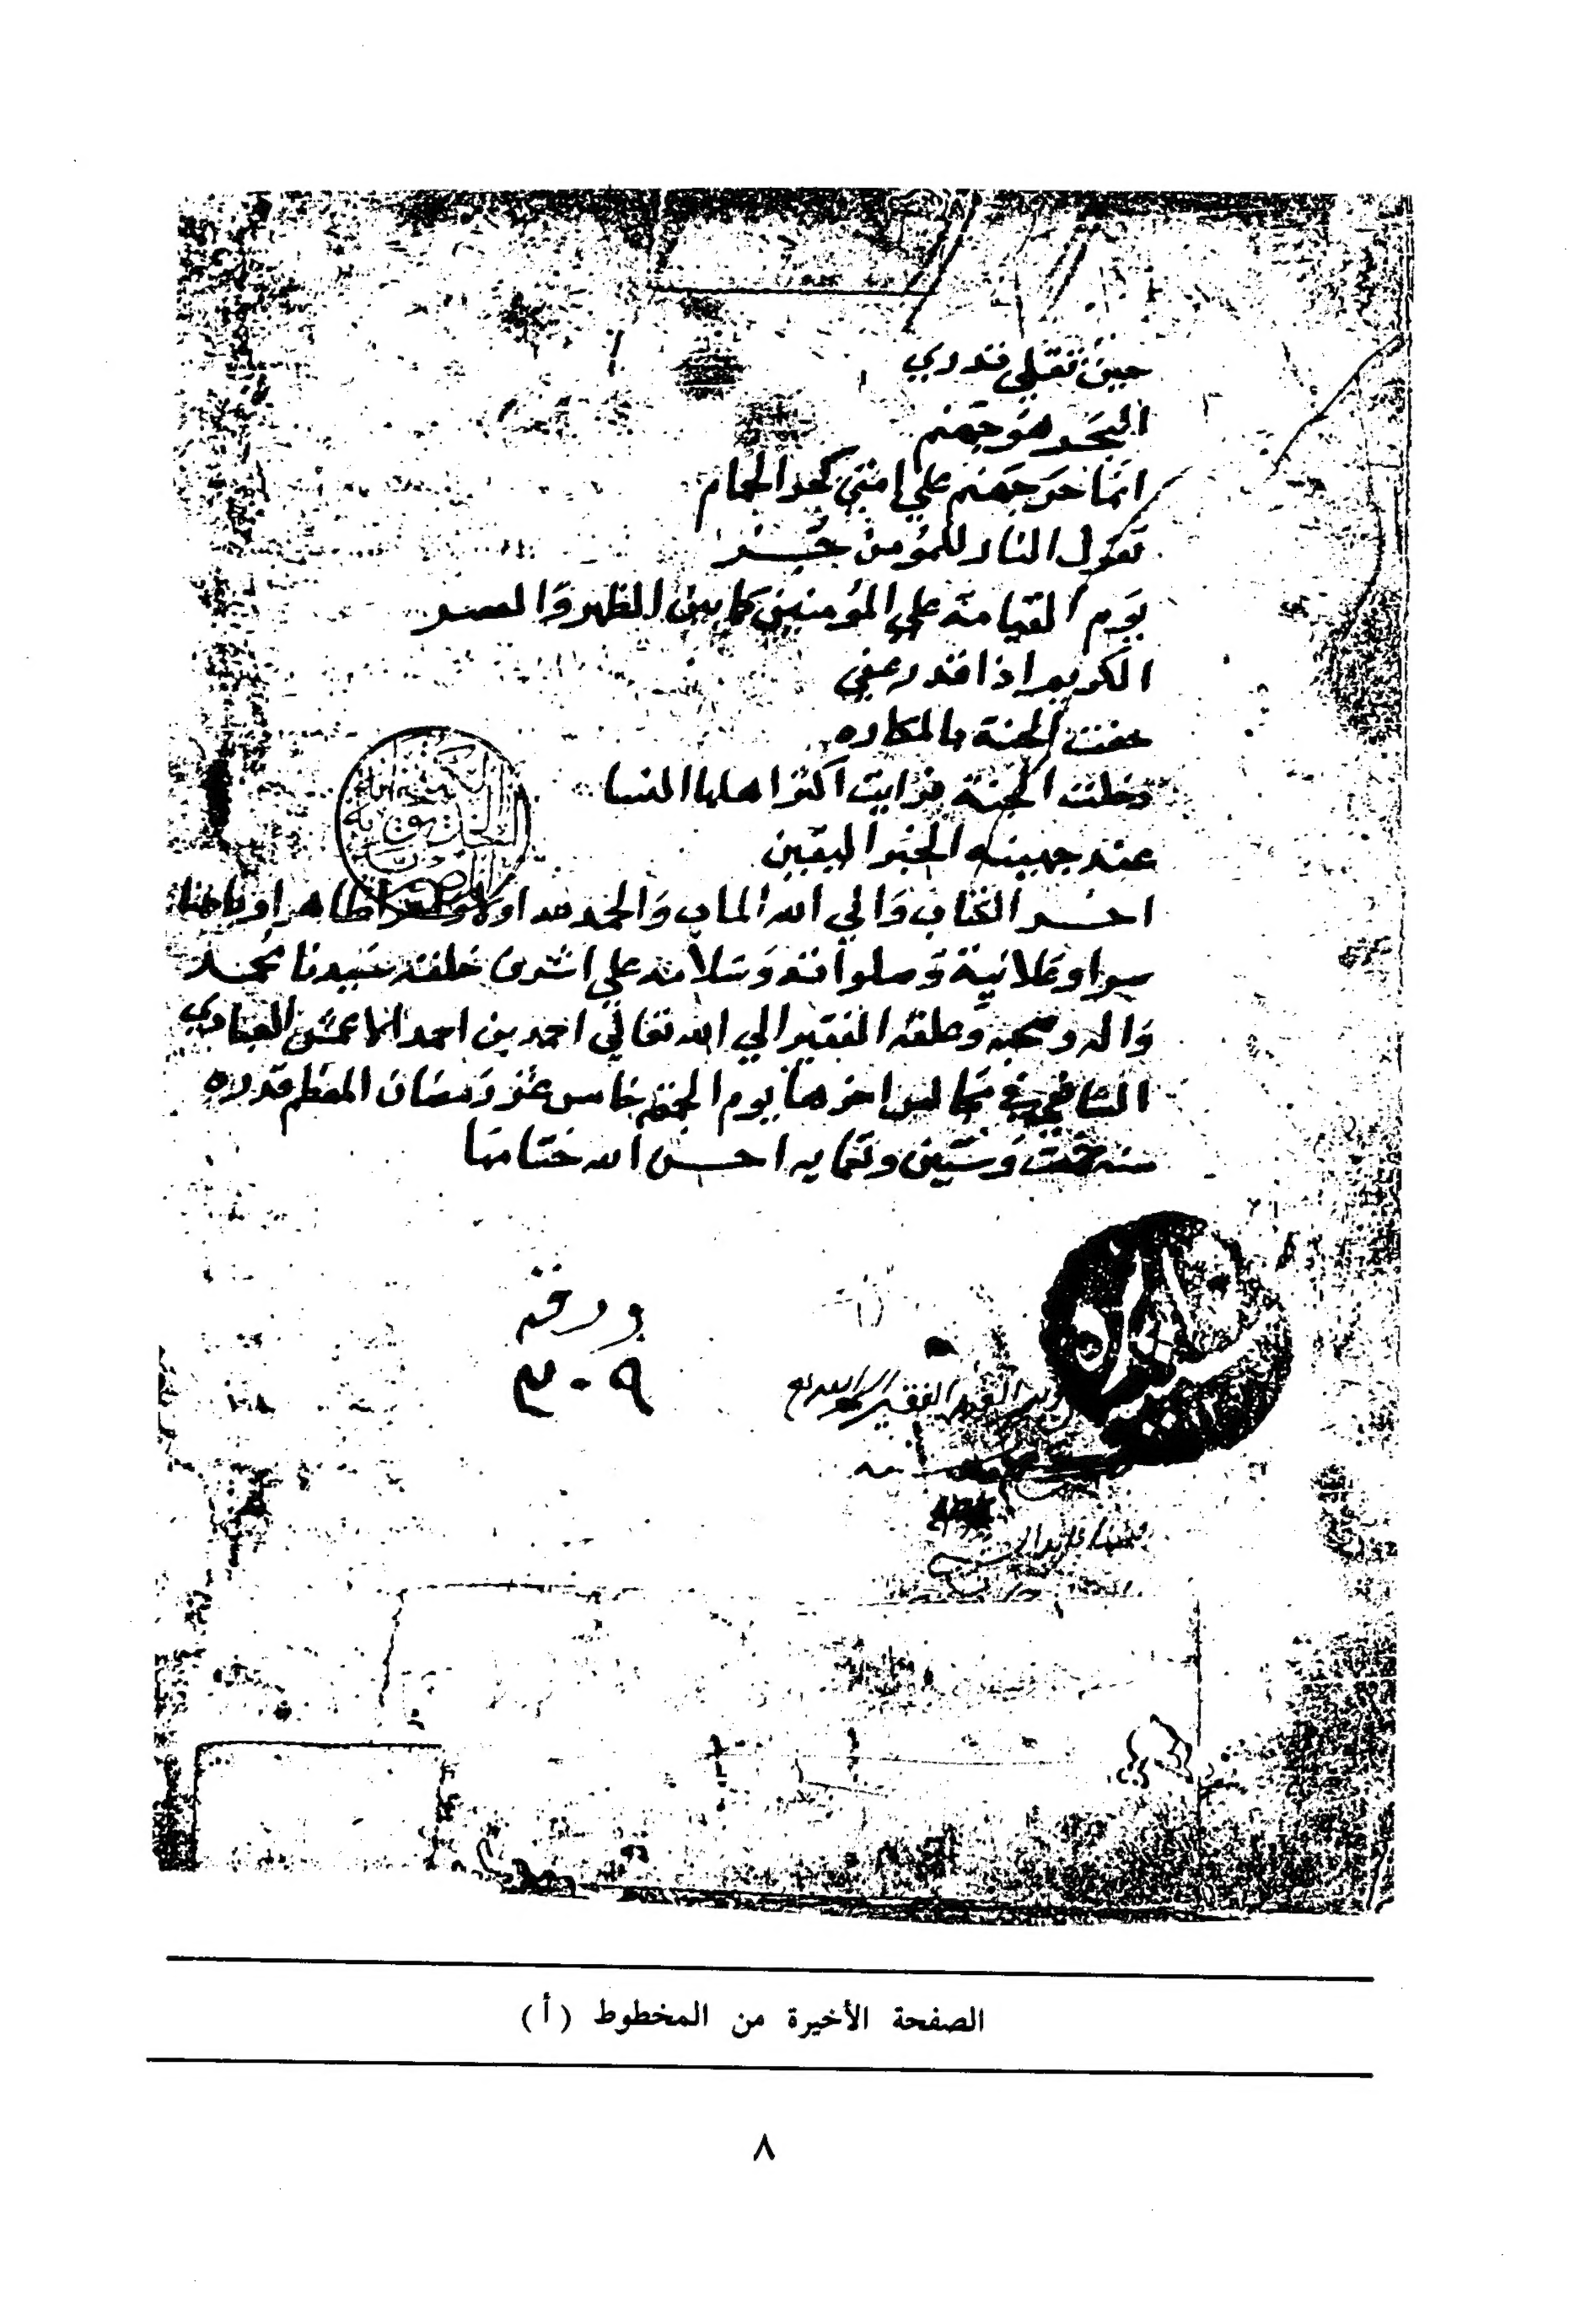 حين تقلي تدري
البحر هو جهنم
انما حر جهنم علي امتي كحر الحمام
تقول النار للمؤمن جز
يوم القيامة علي المؤمنين كما بين الظهر والعصر
الكريم اذا قدر عفي
حفت الجنة بالمكاره
دخلت الجنة فرايت اكثر اهلها النسا
عند جهينه الخبر اليقين
اخر الكتاب والي الله الماب والحمد لله اولا واخرا ظاهرا وباطنا
سرا وعلانية وصلواته وسلامه علي اشرف خلقه سيدنا محمد
واله وصحبه وعلقه الفقير الي الله تعالي احمد بن احمد الاعمش العبادي
الشافعي في مجالس اخرها يوم الجمعة خامس عشر رمضان المعظم قدره
سنه وستين وثمنمايه احسن الله ختامها
ورقة
٣٠٩
الفقير
الصفحة الأخيرة من المخطوط (أ)
٨